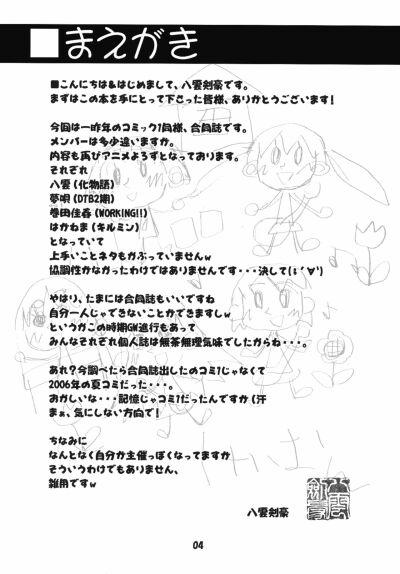 ■まえがき
■こんにちは&はじめまして、八雲剣豪です。
まずはこの本を手にとって下さった皆様、ありがとうございます!
今回は一昨年のコミック1同様、合同誌です。
メンバーは多少違いますが。
内容も再びアニメよろずとなっております。
それぞれ
八雲(化物語)
夢唄(DTB2期)
巻田佳春(WORKING!!)
はかねま(キルミン)
となっていて
上手いことネタもかぶっていませんw
協調性がなかったわけではありませんです・・・決して(;´∀`)
やはり、たまには合同誌もいいですね
自分一人じゃできないことができますしw
というかこの時期GW進行もあって
みんなそれぞれ個人誌は無茶無理気味でしたからね・・・。
あれ?今調べたら合同誌出したのコミ1じゃなくて
2006年の夏コミだった・・・。
おかしいな・・・記憶じゃコミ1だったんですが(汗
まぁ、気にしない方向で!
ちなみに
なんとなく自分が主催っぽくなってますが
そういうわけでもありません、
雑用ですw
八雲剣豪
八雲剣豪
04